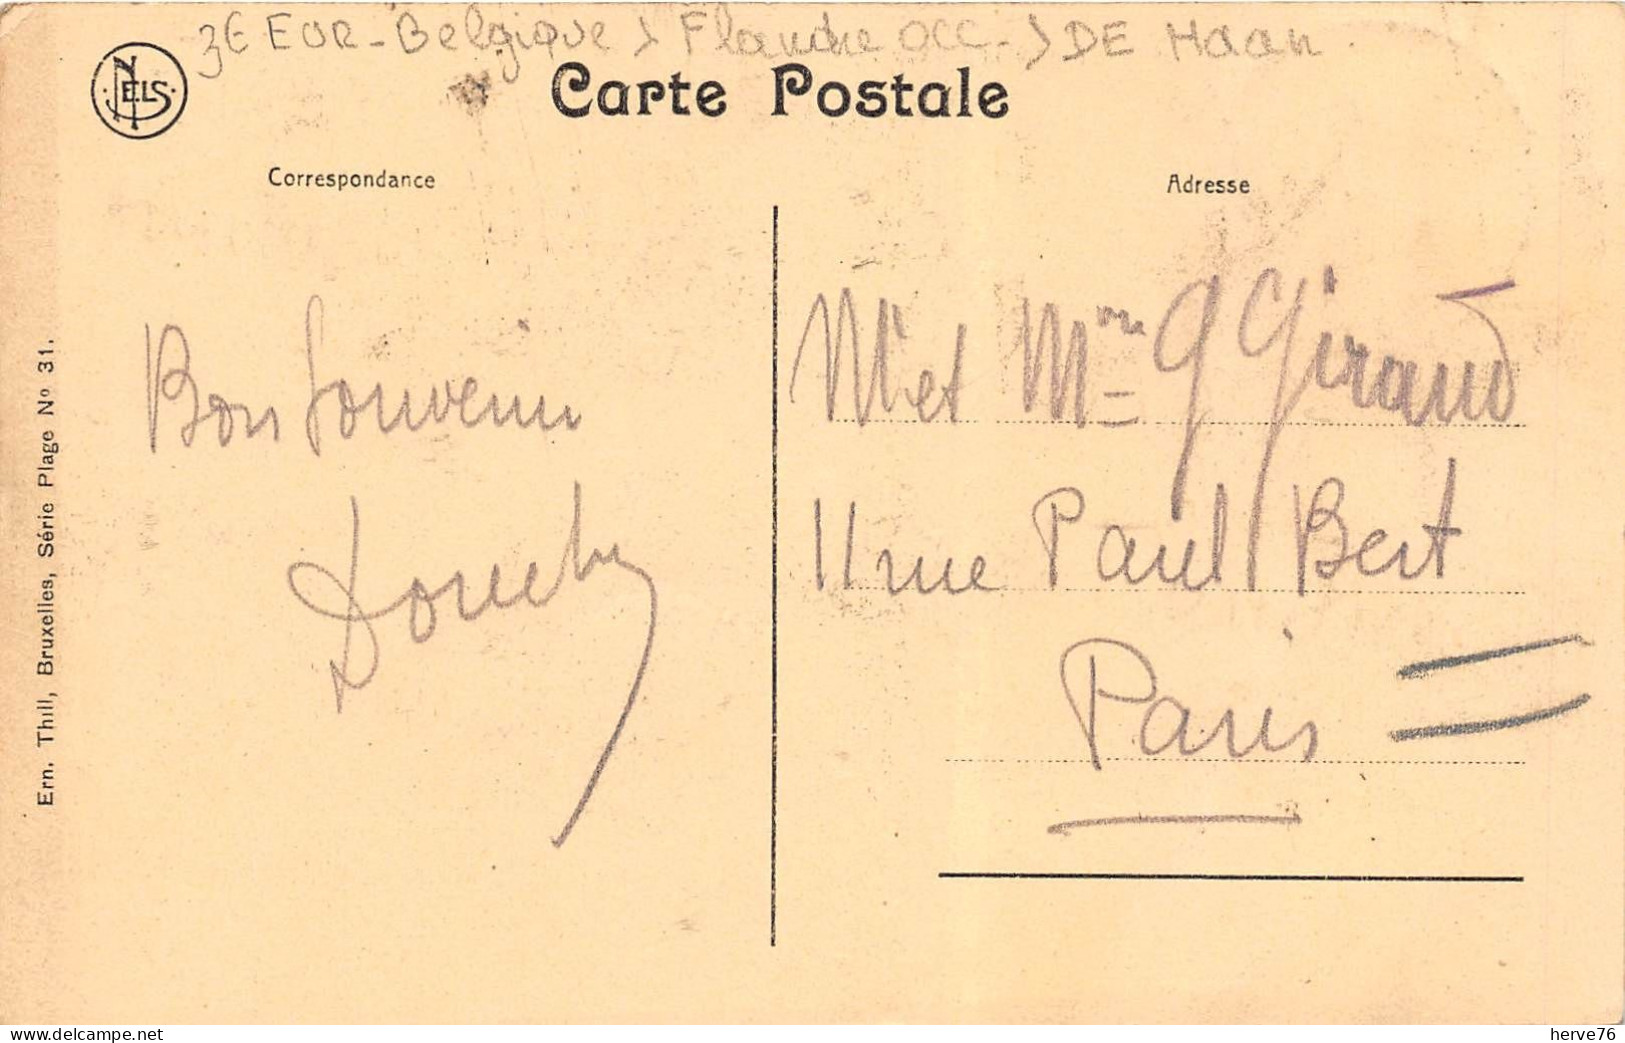 3€ EUR - Belgique > Flandre occ. > DE Haan
NELS
Carte Postale
Correspondance
Adresse
Bon Souvenir
M et Mme G Giraud
11 rue Paul Bert
Paris
Ern. Thill, Bruxelles, Série Plage No 31.
herve76